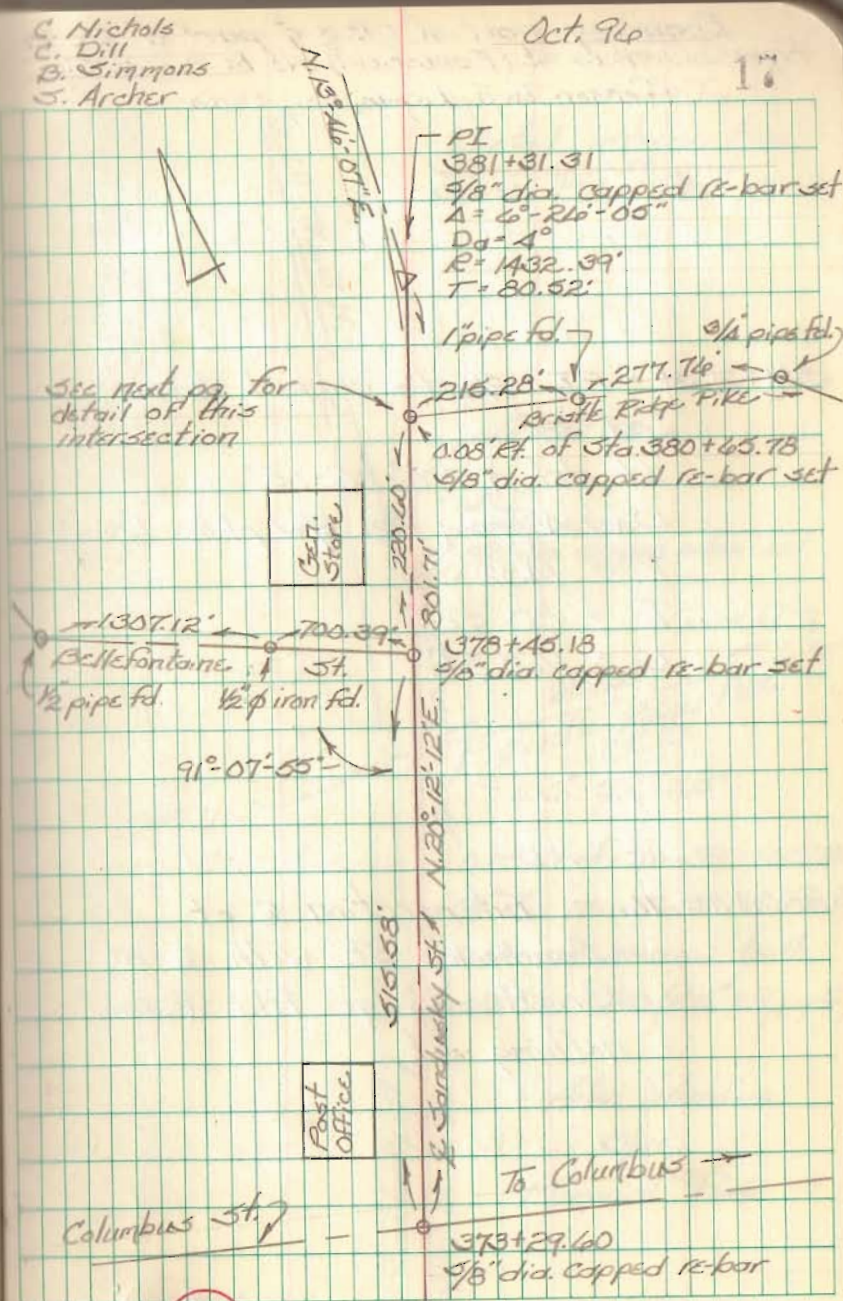 C. Nichols
C. Dill
B. Simmons
S. Archer
Oct. 96
17
N.13°-46'-07"E.
PI
381+31.31
5/8" dia. capped re-bar set
Δ = 6°-26'-05"
Da = 4°
R = 1432.39'
T = 80.52'
1" pipe fd.
3/4" pipe fd.
216.28'
277.76'
Bristle Ridge Pike
See next pg. for
detail of this
intersection
0.08' Rt. of Sta. 380+65.78
5/8" dia. capped re-bar set
Gen.
Store
220.60'
801.71'
1307.12'
700.39'
Bellefontaine St.
1/2" pipe fd.
1/2" φ iron fd.
378+45.18
5/8" dia. capped re-bar set
91°-07'-55"
N.20°-12'-12"E.
515.58'
℄ Sandusky St.
Post
Office
To Columbus
Columbus St.
373+29.60
5/8" dia. capped re-bar